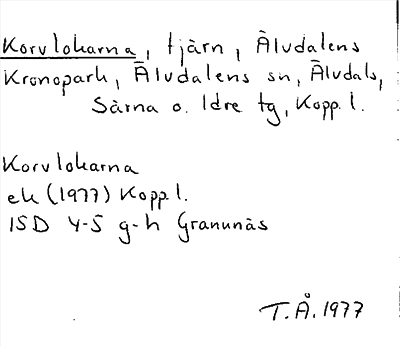 Korvlokarna, tjärn, Älvdalens
Kronopark, Älvdalens sn, Älvdals,
Särna o. Idre tg, Kopp. l.
Korvlokarna
ek (1977) Kopp. l.
15D 4-5 g-h Granunäs
T.Å. 1977